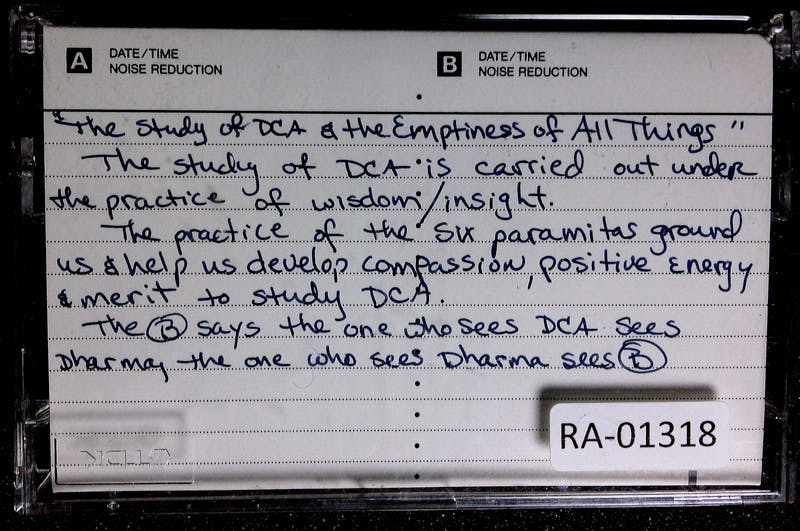 A DATE/TIME
NOISE REDUCTION
B DATE/TIME
NOISE REDUCTION
"The Study of DCA & the Emptiness of All Things"
The study of DCA is carried out under
the practice of wisdom/insight.
The practice of the six paramitas ground
us & help us develop compassion, positive energy
& merit to study DCA.
The Ⓑ says the one who sees DCA sees
Dharma, the one who sees Dharma sees Ⓑ
RA-01318